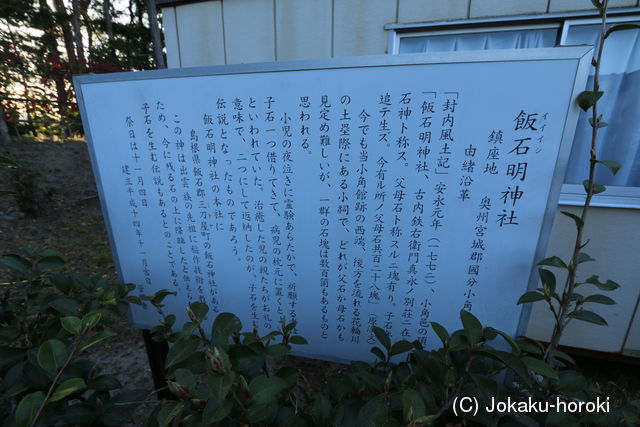 飯石明神社
イイイシ
鎮座地 奥州宮城郡國分小角
由緒沿革
「封内風土記」安永元年(一七七二)、小角邑の
「飯石明神社、古内鉄右衛門真永ノ別荘ニ在
石神ト称ス。父母石ト称スル二塊有り。子石
追テ生ズ。今有ル所ノ父母石共百二十八塊」
今でも当小角館跡の西端、後方を流れる花輪川
の土塁際にある小祠で、どれが父石か母石かも
見定め難しいが、一群の石塊は数百箇もあるものと
思われる。
小児の夜泣きに霊験あらたかで、祈願する
子石一つ借りてきて、病児の枕元に置くと
といわれていた。治癒した児の親たちがお礼の
意味で、二つにして返納したのが、子石が生
伝説となったものであろう。
飯石明神社の本社に
島根県飯石郡三刀屋町の飯石神社があ
この神は出雲族の先祖に稲作技術を
ため、今に残る石の上に降臨したと伝え
子石を生む伝説もあるとのことである。
祭日は十一月四日
建立平成十四年十一月吉日
(C) Jokaku-horoki